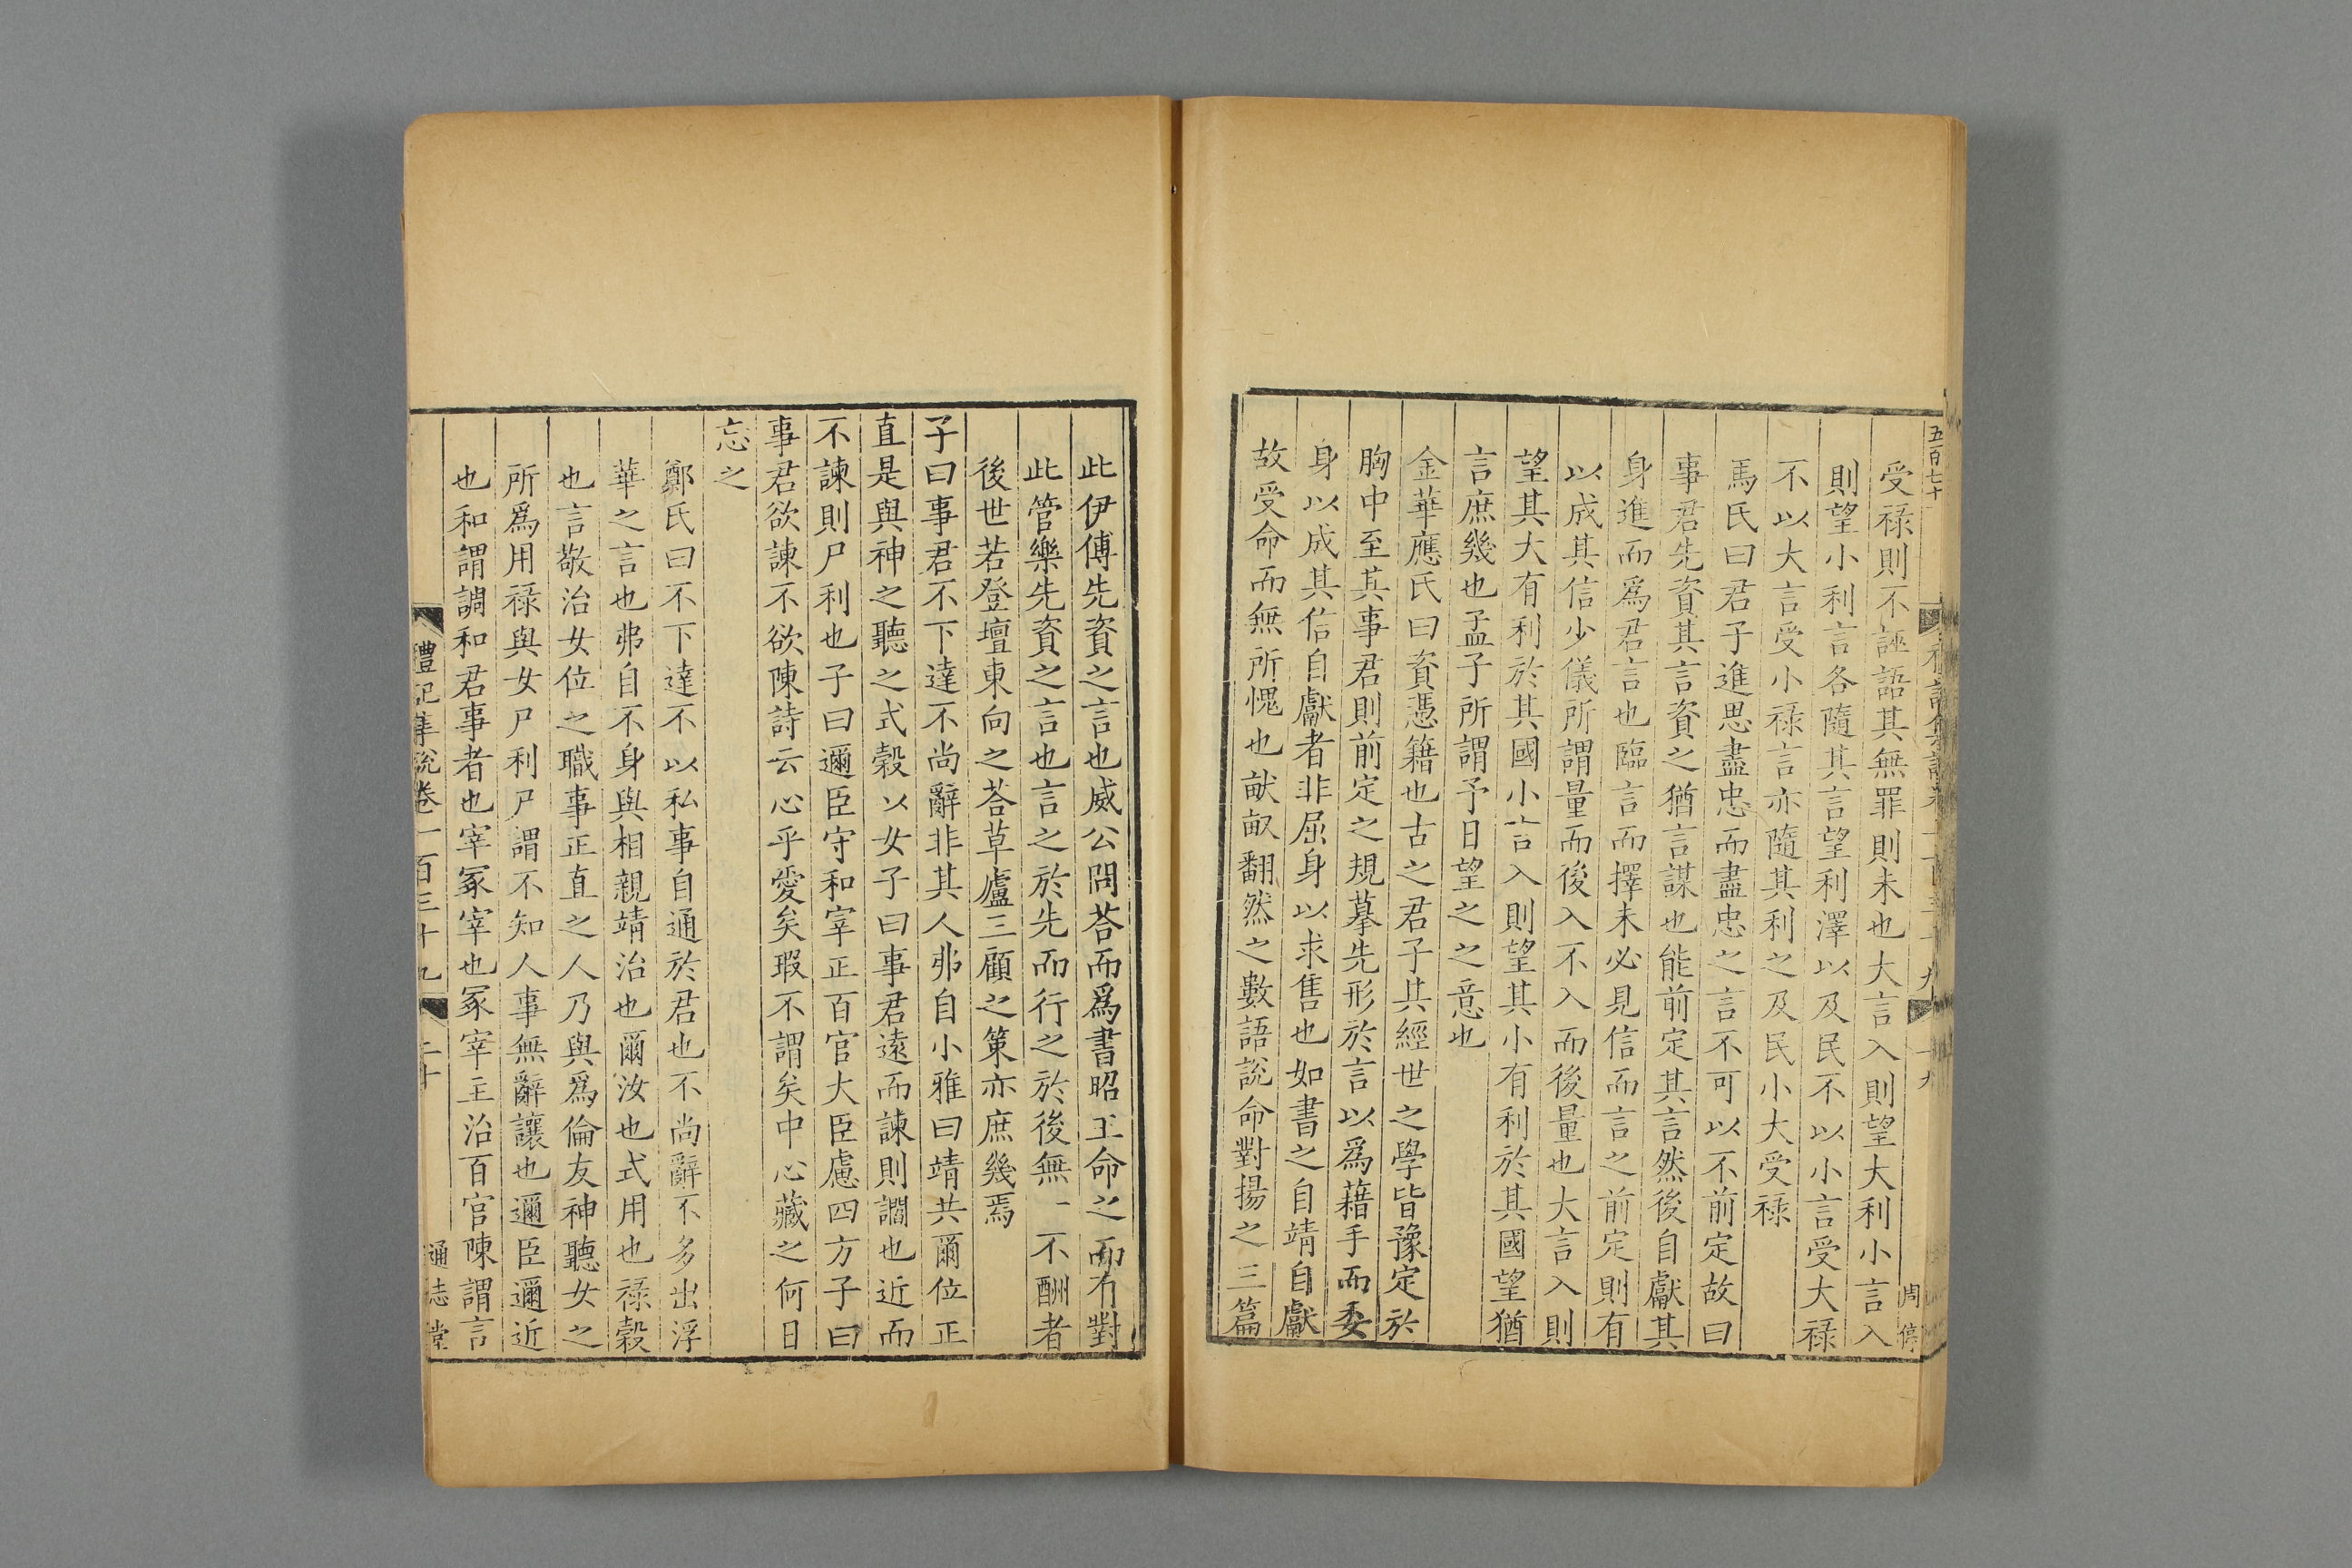 五百七十
受禄則不誣語其無罪則未也大言入則望大利小言入
則望小利言各隨其言望利澤以及民不以小言受大禄
不以大言受小禄言亦隨其利之及民小大受禄
馬氏曰君子進思盡忠而盡忠之言不可以不前定故曰
事君先資其言資之猶言謀也能前定其言然後自獻其
身進而爲君言也臨言而擇未必見信而言之前定則有
以成其信少儀所謂量而後入不入而後量也大言入則
望其大有利於其國小言入則望其小有利於其國望猶
言庶幾也孟子所謂予日望之之意也
金華應氏曰資憑籍也古之君子其經世之學皆豫定於
胸中至其事君則前定之規摹先形於言以爲藉手而委
身以成其信自獻者非屈身以求售也如書之自靖自獻
故受命而無所愧也畎畝翻然之數語說命對揚之三篇
十九
周
此伊傅先資之言也威公問荅而爲書昭王命之而有對
此管樂先資之言也言之於先而行之於後無一不酬者
後世若登壇東向之荅草廬三顧之策亦庶幾焉
子曰事君不下達不尚辭非其人弗自小雅曰靖共爾位正
直是與神之聽之式穀以女子曰事君遠而諫則讇也近而
不諫則尸利也子曰邇臣守和宰正百官大臣慮四方子曰
事君欲諫不欲陳詩云心乎愛矣瑕不謂矣中心藏之何日
忘之
鄭氏曰不下達不以私事自通於君也不尚辭不多出浮
華之言也弗自不身與相親靖治也爾汝也式用也禄穀
也言敬治女位之職事正直之人乃與爲倫友神聽女之
所爲用禄與女尸利尸謂不知人事無辭讓也邇臣邇近
也和謂調和君事者也宰冢宰也冢宰主治百官陳謂言
禮記集說卷一百三十九
二十
通志堂